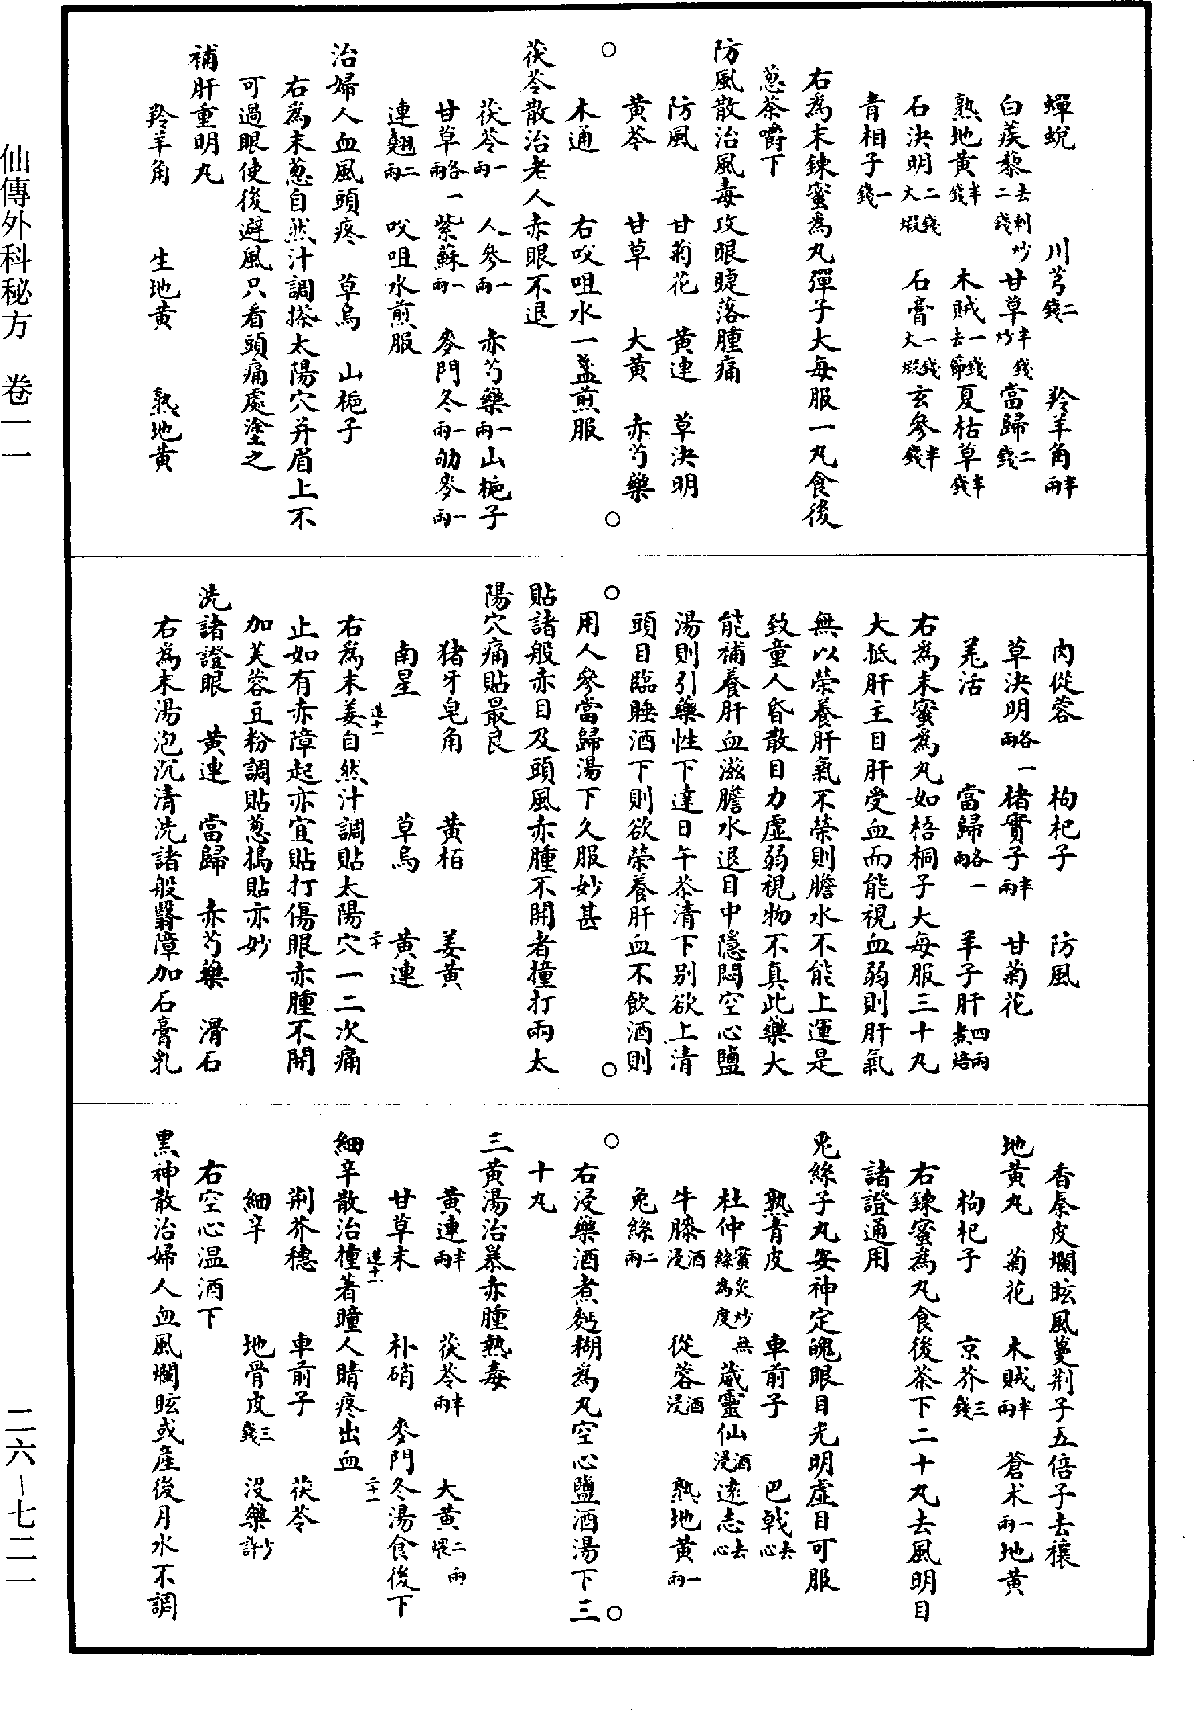 仙傳外科秘方　卷一一
二六—七二一
蟬蛻　川芎二錢　羚羊角半兩
白蒺藜去刺炒二錢　甘草半錢炒　當歸二錢
熟地黃半錢　木賊一錢去節　夏枯草半錢
石決明二錢火煅　石膏一錢火煅　玄參半錢
青相子一錢
右為末鍊蜜為丸彈子大每服一丸食後
葱茶嚼下
防風散治風毒攻眼睫落腫痛
防風　甘菊花　黃連　草決明
黃芩　甘草　大黃　赤芍藥
木通　右㕮咀水一盞煎服
茯苓散治老人赤眼不退
茯苓一兩　人參一兩　赤芍藥一兩　山梔子
甘草各一兩　紫蘇一兩　麥門冬一兩　劬麥一兩
連翹二兩　㕮咀水煎服
治婦人血風頭疼　草烏　山梔子
右為末葱自然汁調搽太陽穴并眉上不
可過眼使後避風只看頭痛處塗之
補肝重明丸
羚羊角　生地黃　熟地黃
肉從蓉　枸杞子　防風
草決明各一兩　楮實子半兩　甘菊花
羌活　當歸各一兩　羊子肝四兩煮焙
右為末蜜為丸如梧桐子大每服三十丸
大抵肝主目肝受血而能視血弱則肝氣
無以榮養肝氣不榮則膽水不能上運是
致童人昏散目力虛弱視物不真此藥大
能補養肝血滋膽水退目中隱悶空心鹽
湯則引藥性下達日午茶清下別欲上清
頭目臨睡酒下則欲榮養肝血不飲酒則
用人參當歸湯下久服妙甚
貼諸般赤目及頭風赤腫不開者撞打兩太
陽穴痛貼最良
猪牙皂角　黃栢　姜黃
南星　草烏　黃連
右為末姜自然汁調貼太陽穴一二次痛
止如有赤障起亦宜貼打傷眼赤腫不開
加芙蓉豆粉調貼葱搗貼亦妙
洗諸證眼　黃連　當歸　赤芍藥　滑石
右為末湯泡沉清洗諸般翳障加石膏乳
香秦皮爛眩風蔓荆子五倍子去穰
地黃丸　菊花　木賊半兩　蒼术一兩　地黃
枸杞子　京芥三錢
右鍊蜜為丸食後茶下二十丸去風明目
諸證通用
兎絲子丸安神定魄眼目光明虛目可服
熟青皮　車前子　巴戟去心
杜仲蜜炙炒無絲為度　葳靈仙酒浸　遠志去心
牛膝酒浸　從蓉酒浸　熟地黃一兩
兔絲二兩
右浸藥酒煮麪糊為丸空心鹽酒湯下三
十丸
三黃湯治暴赤腫熟毒
黃連半兩　茯苓半兩　大黃二兩煨
甘草末　朴硝　麥門冬湯食後下
細辛散治撞著瞳人睛疼出血
荆芥穗　車前子　茯苓
細辛　地骨皮三錢　沒藥少許
右空心温酒下
黑神散治婦人血風爛眩或產後月水不調